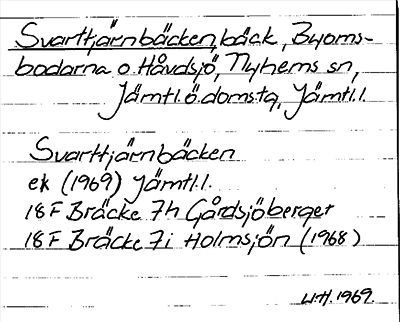 Svarttjärnbäcken, bäck, Byoms-
bodarna o Håvdsjö, Nyhems sn,
Jämtl.ö.domsta, Jämtl.l.
Svarttjärnbäcken
ek (1969) Jämtl.l.
18F Bräcke 7h Gårdsjöberget
18F Bräcke 7i Holmsjön (1968)
U.H. 1969.